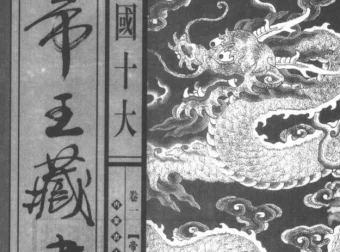 國十大
帝王藏
卷一【帝